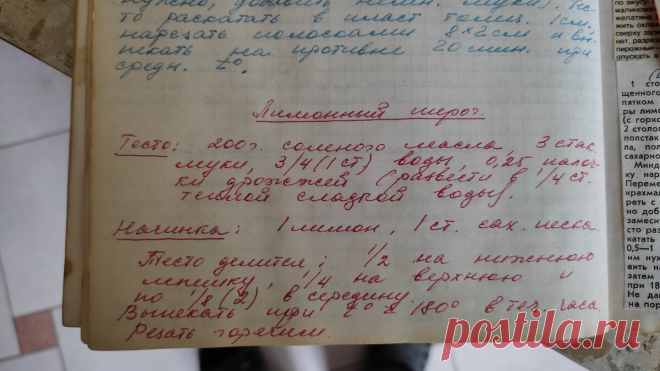 нужно, добавить немн. муки). Те-
то раскатать в пласт толщ. 1 см,
нарезать полосками 8×2 см и вы-
пекать на противне 20 мин. при
средн. t°.
Лимонный пирог.
Тесто: 200 г. соленого масла, 3 стак.
муки, 3/4 (1 ст) воды, 0,25 палоч-
ки дрожжей (развести в 1/4 ст.
теплой сладкой воды).
Начинка: 1 лимон, 1 ст. сах. песка.
Тесто делится: 1/2 на нижнюю
лепешку, 1/4 на верхнюю и
по 1/8 (2) в середину.
Выпекать при t° = 180° в теч. часа
Резать горячим.
по вкусу
малинового
желатина
жить охла
сверху зали
нет, разрез
пирожные
опускать в
1 сто
щенного
пятком
ры лимо
(с горко
2 столо
полстак
ла, пол
сахарно
Минд
ку нар
Переме
крахма
реть с
но доб
замеси
сто раз
катать
0,5—1
им нуж
вить на
затем
при 18
Не да
на пор
postila.ru